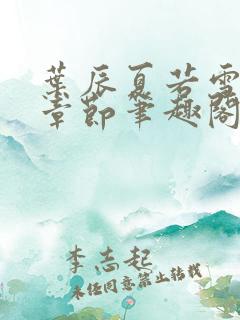 葉辰夏若雪
章節筆趣閣
李志起
未经同意禁止转载